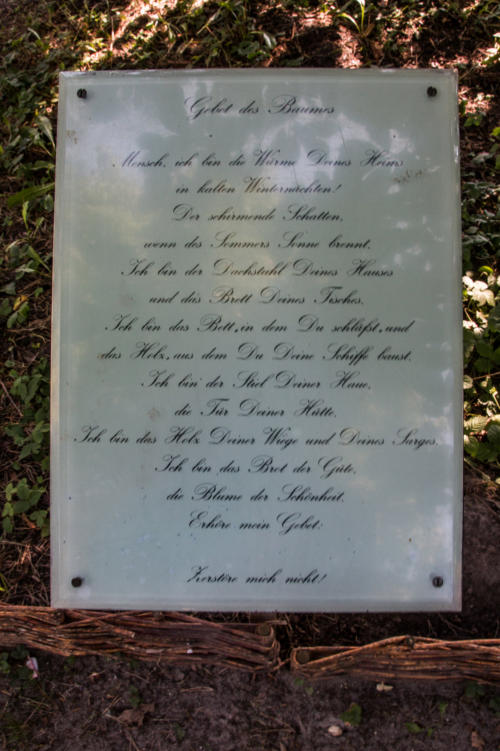 Gebet des Baumes
Mensch, ich bin die Wärme Deines Heims
in kalten Winternächten!
Der schirmende Schatten,
wenn des Sommers Sonne brennt.
Ich bin der Dachstuhl Deines Hauses
und das Brett Deines Tisches.
Ich bin das Bett, in dem Du schläfst, und
das Holz, aus dem Du Deine Schiffe baust.
Ich bin der Stiel Deiner Haue,
die Tür Deiner Hütte.
Ich bin das Holz Deiner Wiege und Deines Sarges.
Ich bin das Brot der Güte,
die Blume der Schönheit.
Erhöre mein Gebet:
Zerstöre mich nicht!